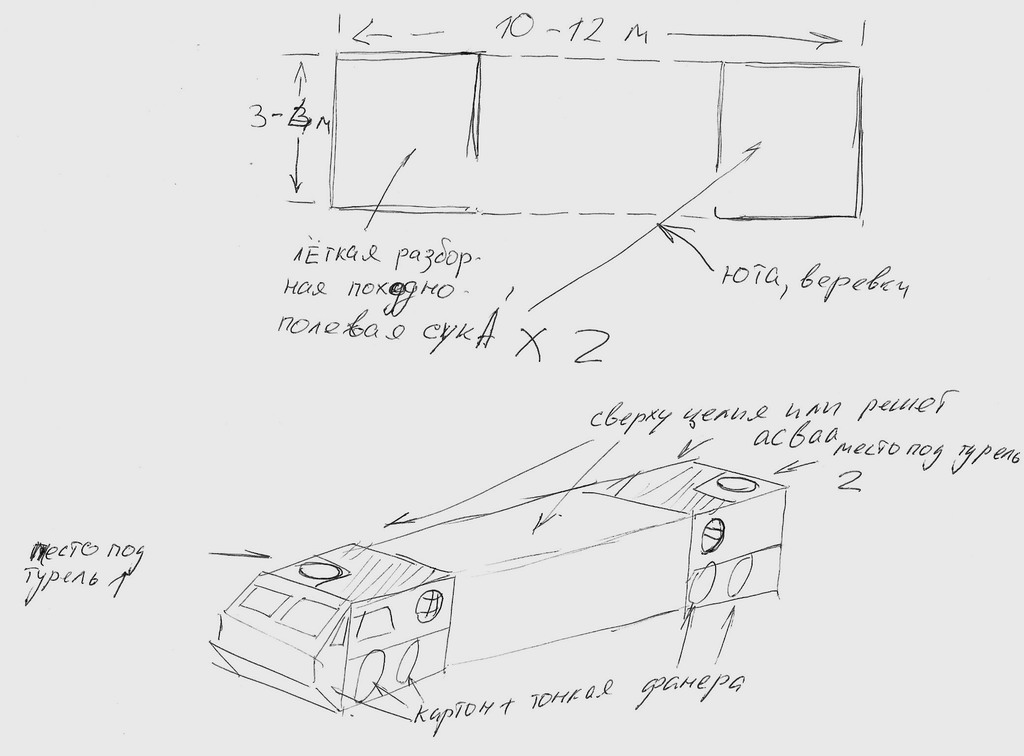 10-12 м
3-3 м
лёгкая разбор-
ная походно-
полевая сукА́ х 2
юта, веревки
сверху целия или решет
асваа
место под турель
2
место под
турель 1
картон + тонкая фанера